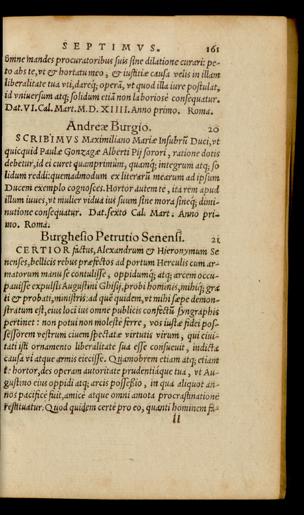 SEPTIMVS. 161
omne mandes procuratoribus suis sine dilatione curari: pe-
to abs te, vt & hortatu meo, & iustitiæ causa velis in illam
liberalitate tua vti, dareq; operã, vt quod illa iure postulat,
id vniuersum atq; solidum etiã non laboriosè consequatur.
Dat. VI. Cal. Mart. M. D. XIIII. Anno primo. Roma.
Andreæ Burgio. 20
SCRIBIMVS Maximiliano Mariæ Insubrũ Duci, vt
quicquid Paulæ Gonzagæ Alberti Pij sorori, ratione dotis
debetur, id ei curet quamprimùm, quamq; integrum atq; so
lidum reddi: quemadmodum ex literarũ mearum ad ipsum
Ducem exemplo cognosces. Hortor autem te, ita rem apud
illum iuues, vt mulier vidua ius suum sine mora sineq; dimi-
nutione consequatur. Dat. sexto Cal. Mart. Anno pri-
mo. Roma.
Burghesio Petrutio Senensi. 21
CERTIOR factus, Alexandrum & Hieronymum Se
nenses, bellicis rebus præfectos ad portum Herculis cum ar-
matorum manu se contulisse, oppidumq; atq; arcem occu-
pauisse expulsis Augustini Ghisij, probi hominis, mihiq; gra
ti & probati, ministris: ad quê quidem, vt mihi sæpe demon-
stratum est, eius loci ius omne publicis confectũ syngraphis
pertinet: non potui non molestè ferre, vos iustæ fidei pos-
sessorem vestrum ciuem spectatæ virtutis virum, qui ciui-
tati isti ornamento liberalitate sua esse consueuit, indicta
causa vi atque armis eiecisse. Quamobrem etiam atq; etiam
te hortor, des operam autoritate prudentiáque tua, vt Au-
gustino eius oppidi atq; arcis possessio, in qua aliquot an-
nos pacificè fuit, amicè atque omni amota procrastinatione
restituatur. Quod quidem certè pro eo, quanti hominem fa-
ll